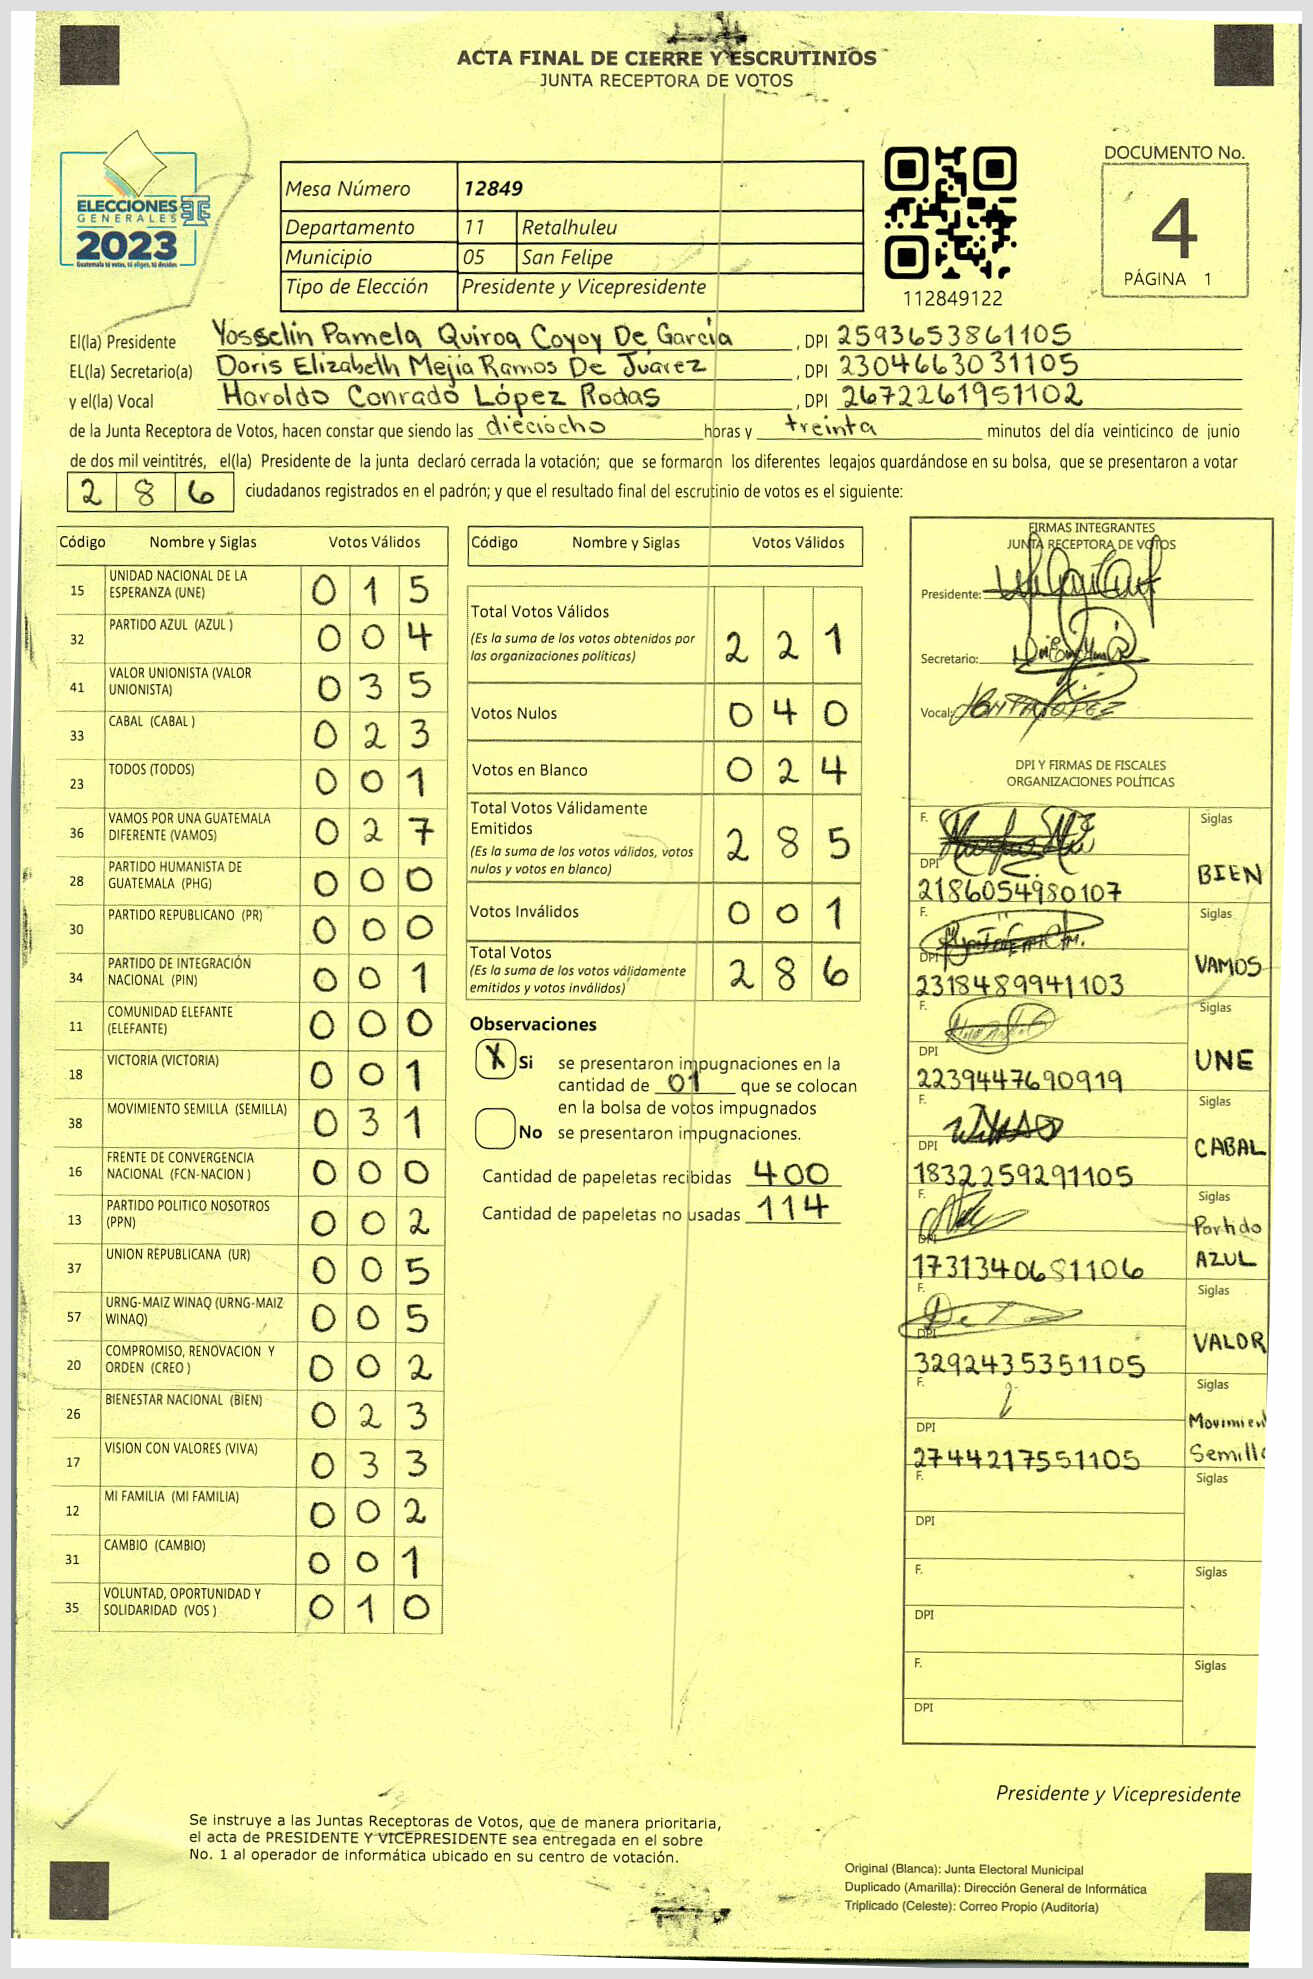 ACTA FINAL DE CIERRE Y ESCRUTINIOS
JUNTA RECEPTORA DE VOTOS
ELECCIONES
GENERALES
2023
Guatemala tú votas, tú eliges, tú decides
Mesa Número 12849
Departamento 11 Retalhuleu
Municipio 05 San Felipe
Tipo de Elección Presidente y Vicepresidente
112849122
DOCUMENTO No.
4
PÁGINA 1
El(la) Presidente Yosselin Pamela Quiroa Coyoy De García , DPI 2593653861105
EL(la) Secretario(a) Doris Elizabeth Mejía Ramos De Juárez , DPI 2304663031105
y el(la) Vocal Haroldo Conrado López Rodas , DPI 2672261951102
de la Junta Receptora de Votos, hacen constar que siendo las dieciocho horas y treinta minutos del día veinticinco de junio
de dos mil veintitrés, el(la) Presidente de la junta declaró cerrada la votación; que se formaron los diferentes legajos guardándose en su bolsa, que se presentaron a votar
286 ciudadanos registrados en el padrón; y que el resultado final del escrutinio de votos es el siguiente:
Código Nombre y Siglas Votos Válidos
15 UNIDAD NACIONAL DE LA ESPERANZA (UNE) 015
32 PARTIDO AZUL (AZUL ) 004
41 VALOR UNIONISTA (VALOR UNIONISTA) 035
33 CABAL (CABAL ) 023
23 TODOS (TODOS) 001
36 VAMOS POR UNA GUATEMALA DIFERENTE (VAMOS) 027
28 PARTIDO HUMANISTA DE GUATEMALA (PHG) 000
30 PARTIDO REPUBLICANO (PR) 000
34 PARTIDO DE INTEGRACIÓN NACIONAL (PIN) 001
11 COMUNIDAD ELEFANTE (ELEFANTE) 000
18 VICTORIA (VICTORIA) 001
38 MOVIMIENTO SEMILLA (SEMILLA) 031
16 FRENTE DE CONVERGENCIA NACIONAL (FCN-NACION ) 000
13 PARTIDO POLITICO NOSOTROS (PPN) 002
37 UNION REPUBLICANA (UR) 005
57 URNG-MAIZ WINAQ (URNG-MAIZ WINAQ) 005
20 COMPROMISO, RENOVACION Y ORDEN (CREO ) 002
26 BIENESTAR NACIONAL (BIEN) 023
17 VISION CON VALORES (VIVA) 033
12 MI FAMILIA (MI FAMILIA) 002
31 CAMBIO (CAMBIO) 001
35 VOLUNTAD, OPORTUNIDAD Y SOLIDARIDAD (VOS ) 010
Código Nombre y Siglas Votos Válidos
Total Votos Válidos
(Es la suma de los votos obtenidos por las organizaciones políticas) 221
Votos Nulos 040
Votos en Blanco 024
Total Votos Válidamente Emitidos
(Es la suma de los votos válidos, votos nulos y votos en blanco) 285
Votos Inválidos 001
Total Votos
(Es la suma de los votos válidamente emitidos y votos inválidos) 286
Observaciones
X Si se presentaron impugnaciones en la
cantidad de 01 que se colocan
en la bolsa de votos impugnados
No se presentaron impugnaciones.
Cantidad de papeletas recibidas 400
Cantidad de papeletas no usadas 114
FIRMAS INTEGRANTES
JUNTA RECEPTORA DE VOTOS
Presidente:
Secretario:
Vocal:
DPI Y FIRMAS DE FISCALES
ORGANIZACIONES POLÍTICAS
F. Siglas
DPI 2186054980107 BIEN
F. Siglas
DPI 2318489941103 VAMOS
F. Siglas
DPI 2239447690919 UNE
F. Siglas
DPI 1832259291105 CABAL
F. Siglas
DPI 1731340681106 Partido AZUL
F. Siglas
DPI 3292435351105 VALOR
F. Siglas
DPI 2744217551105 Movimien Semilla
F. Siglas
DPI
F. Siglas
DPI
F. Siglas
DPI
Presidente y Vicepresidente
Se instruye a las Juntas Receptoras de Votos, que de manera prioritaria,
el acta de PRESIDENTE Y VICEPRESIDENTE sea entregada en el sobre
No. 1 al operador de informática ubicado en su centro de votación.
Original (Blanca): Junta Electoral Municipal
Duplicado (Amarilla): Dirección General de Informática
Triplicado (Celeste): Correo Propio (Auditoría)